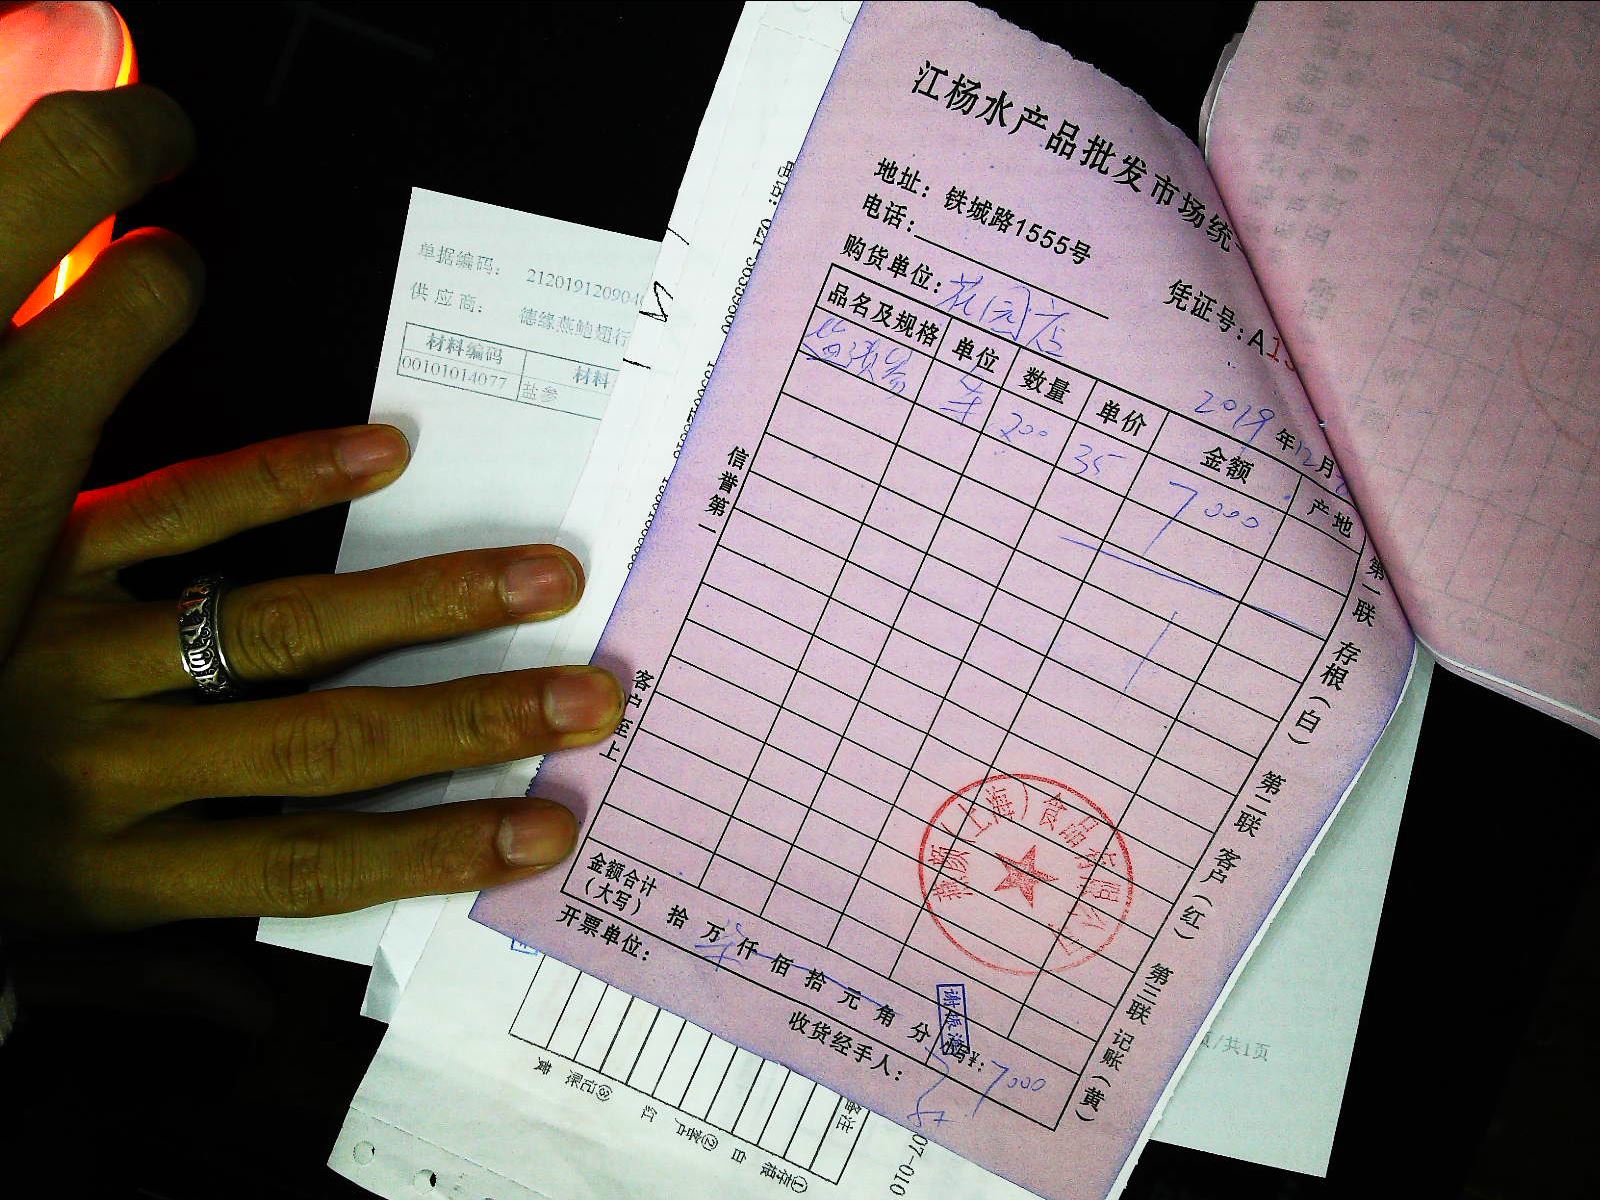 江杨水产品批发市场统一
地址：铁城路1555号
电话：
凭证号：A13
购货单位：花园店
2019年12月
品名及规格 单位 数量 单价 金额 产地
200 35 7000
信誉第一
客户至上
第一联 存根（白） 第二联 客户（红） 第三联 记账（黄）
（上海）食品有限公司
金额合计（大写） 拾 万 柒 仟 佰 拾 元 角 分 小写¥：7000
开票单位：
收货经手人：
单据编码： 2120191209040
供应商： 德缘燕鲍翅行
材料编码 材料
00101014077 盐参
页/共1页
备注
①存根 白 ②客户 红 ③记账 黄